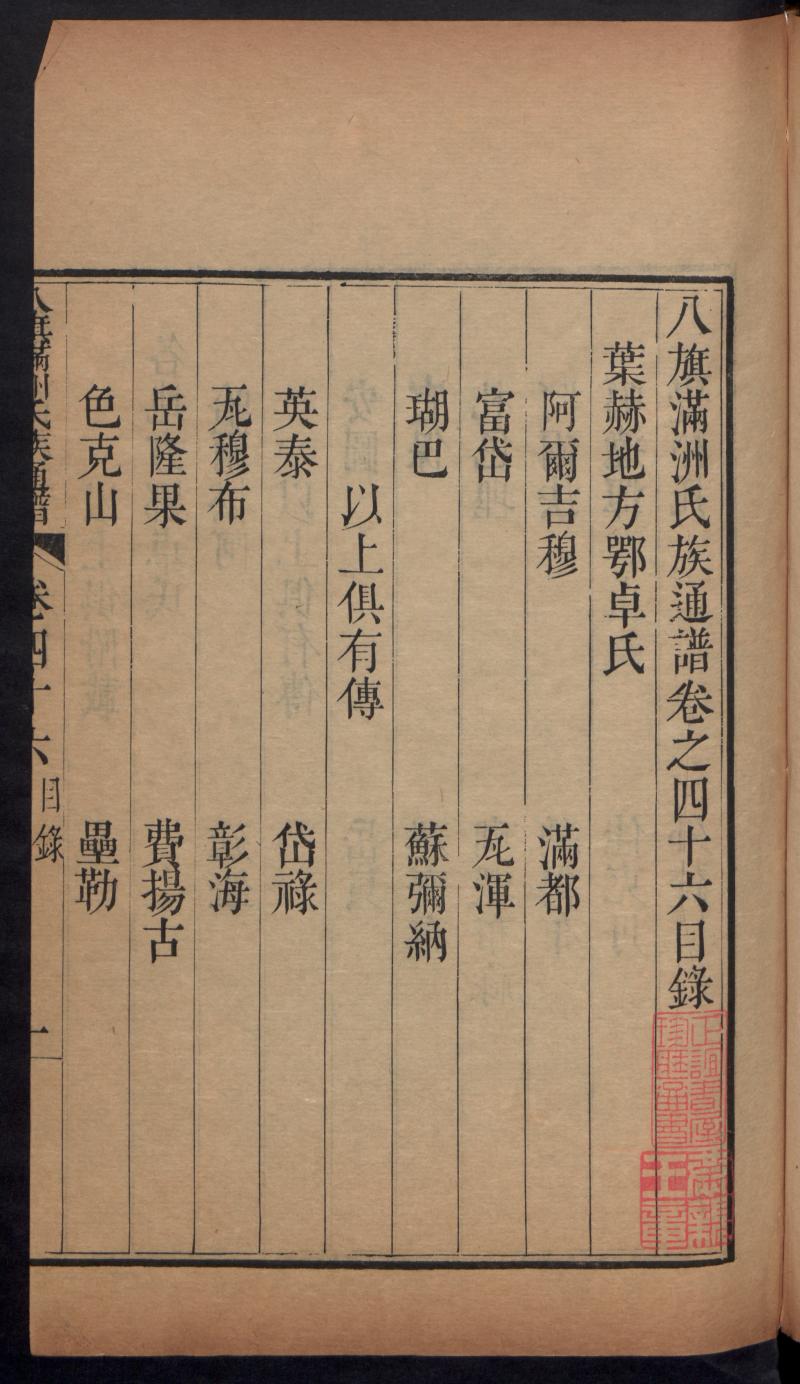 八旗滿洲氏族通譜卷之四十六目錄
葉赫地方鄂卓氏
阿爾吉穆 滿都
富岱 瓦渾
瑚巴 蘇彌納
以上俱有傳
英泰 岱祿
瓦穆布 彰海
岳隆果 費揚古
色克山 壘勒
八旗滿洲氏族通譜 卷四十六 目錄 一